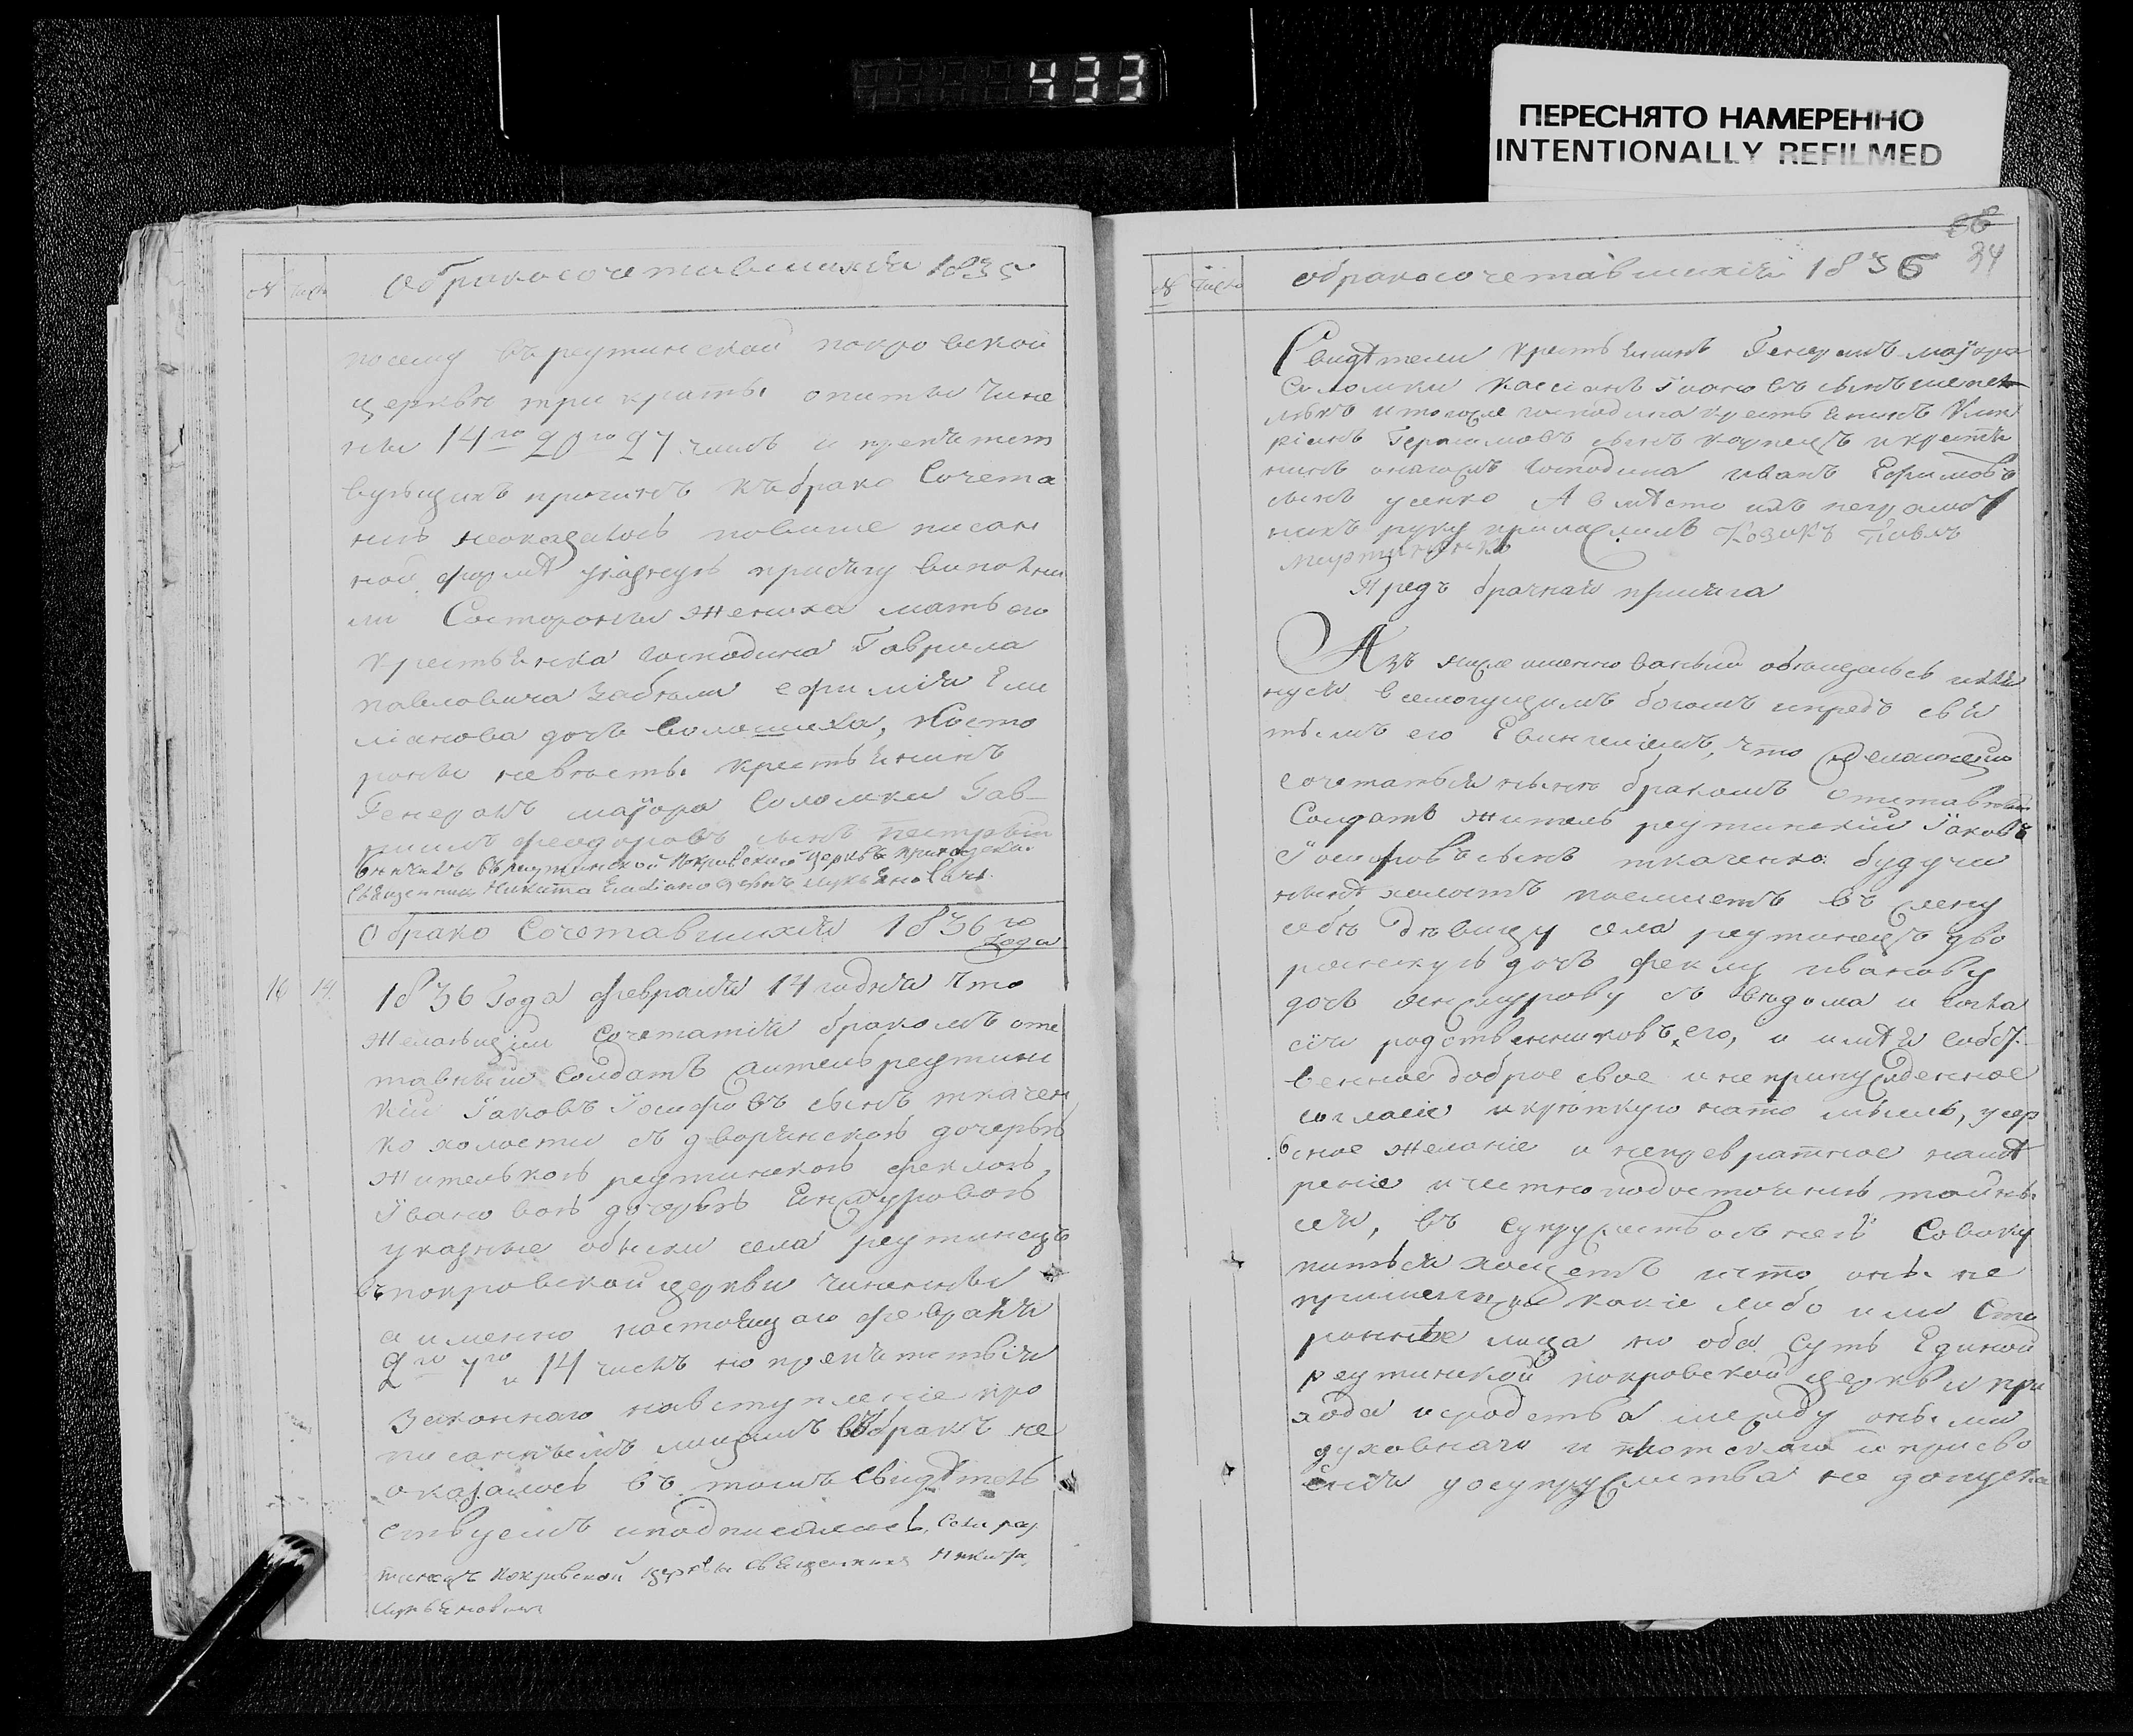 433
ПЕРЕСНЯТО НАМЕРЕННО
INTENTIONALLY REFILMED
№ число
О бракосочетавшихся 1835
посему въ реутинской покровской
церквѣ три кратьі
ни 14го 20го 27 числъ и препятст
вующихъ причинъ къ брако Сочета
нію неоказалось повыше писан
ной формѣ присягу виполни
ли Состороньі жениха мать его
крестьянка господина Гаврила
павловича Забѣльі ефимія Еми
ліанова дочь Волошиха, Насто
роньі невѣстьі крестьянинъ
Генералъ маіора Соломки Гав-
риилъ феодоровъ сынъ пестрьій
вѣнчалъ въ реутинской покровской церквѣ
Священникъ Никита
О брако Сочетавшихся 1836го
Года
16 14.
1836 Года февраля 14 годня что
Желающіи Сочетатія бракомъ отс
тавньій Солдатъ житель реутинс
кій Іаковъ Іосифовъ сынъ ткачен
ко холостьі съ дворянскою дочерью
жителькою реутинскою феклою,
Івановою дочерью
указньіе обьіски села реутинецъ
въ покровской церкви чиненньі
а именно настоящаго февраля
2го 7го и 14 числъ но препятствія
законнаго навступленіе про
писанньімъ лицамъ въ бракъ не
оказалось въ томъ Свидѣтель
ствуемъ и подписались. Села реу
тинецъ покровской церквьі священникъ Никита
№ число
О бракосочетавшихся 1836
66
34
Свидѣтели крестьянинъ Генералъ маіора
Соломки касіянъ Івановъ сынъ шепет
лѣкъ и тогоже господина крестьянинъ
ріянъ Герасимовъ сынъ карпецъ и крестя
нинъ онагожъ господина иванъ Ефимовъ
сынъ усенко А вмѣсто ихъ неграмот
нихъ руку приложилъ Козакъ Павлъ
Предъ брачная присяга
Азъ ниже именно ванньій обѣщаюсь и кля
нуся всемогущимъ богомъ и предъ свя
тьімъ его Евангеліемъ, что желающій
сочетатьіся ньінѣ бракомъ отставньій
Солдатъ житель реутинскій Іаковъ
Іосифовъ сынъ ткаченко будучи
ньінѣ холостъ поемлетъ въ жену
себѣ дѣвицу села реутинецъ дво
рянскую дочь феклу иванову
дочь съ вѣдома и согла
сія родственниковъ его, и имѣя собст
венное доброе свое и непринужденное
согласіе и крѣпкую нато мьісль, усер
дное желаніе и непревратное намѣ
реніе и честно подостоянію тайньі
сея, въ супружество съ нею Совоку
питься хощетъ и что оньі не
пришельцьі какіе либо или Сто
ронньіе лица но оба Суть Единой
реутинской покровской церкви при
хода и сродства между оньіми
духовнаго и плотскаго и присво
енія у супружества не допуска